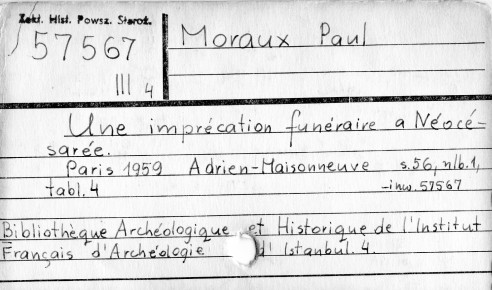 Zakł. Hist. Powsz. Staroż.
57567
III 4
Moraux Paul
Une imprécation funéraire a Néocé-
sarée.
Paris 1959 Adrien-Maisonneuve s.56, nlb.1,
tabl. 4 -inw. 57567
Bibliothèque Archéologique et Historique de l'Institut
Français d'Archéologie d'Istanbul. 4.